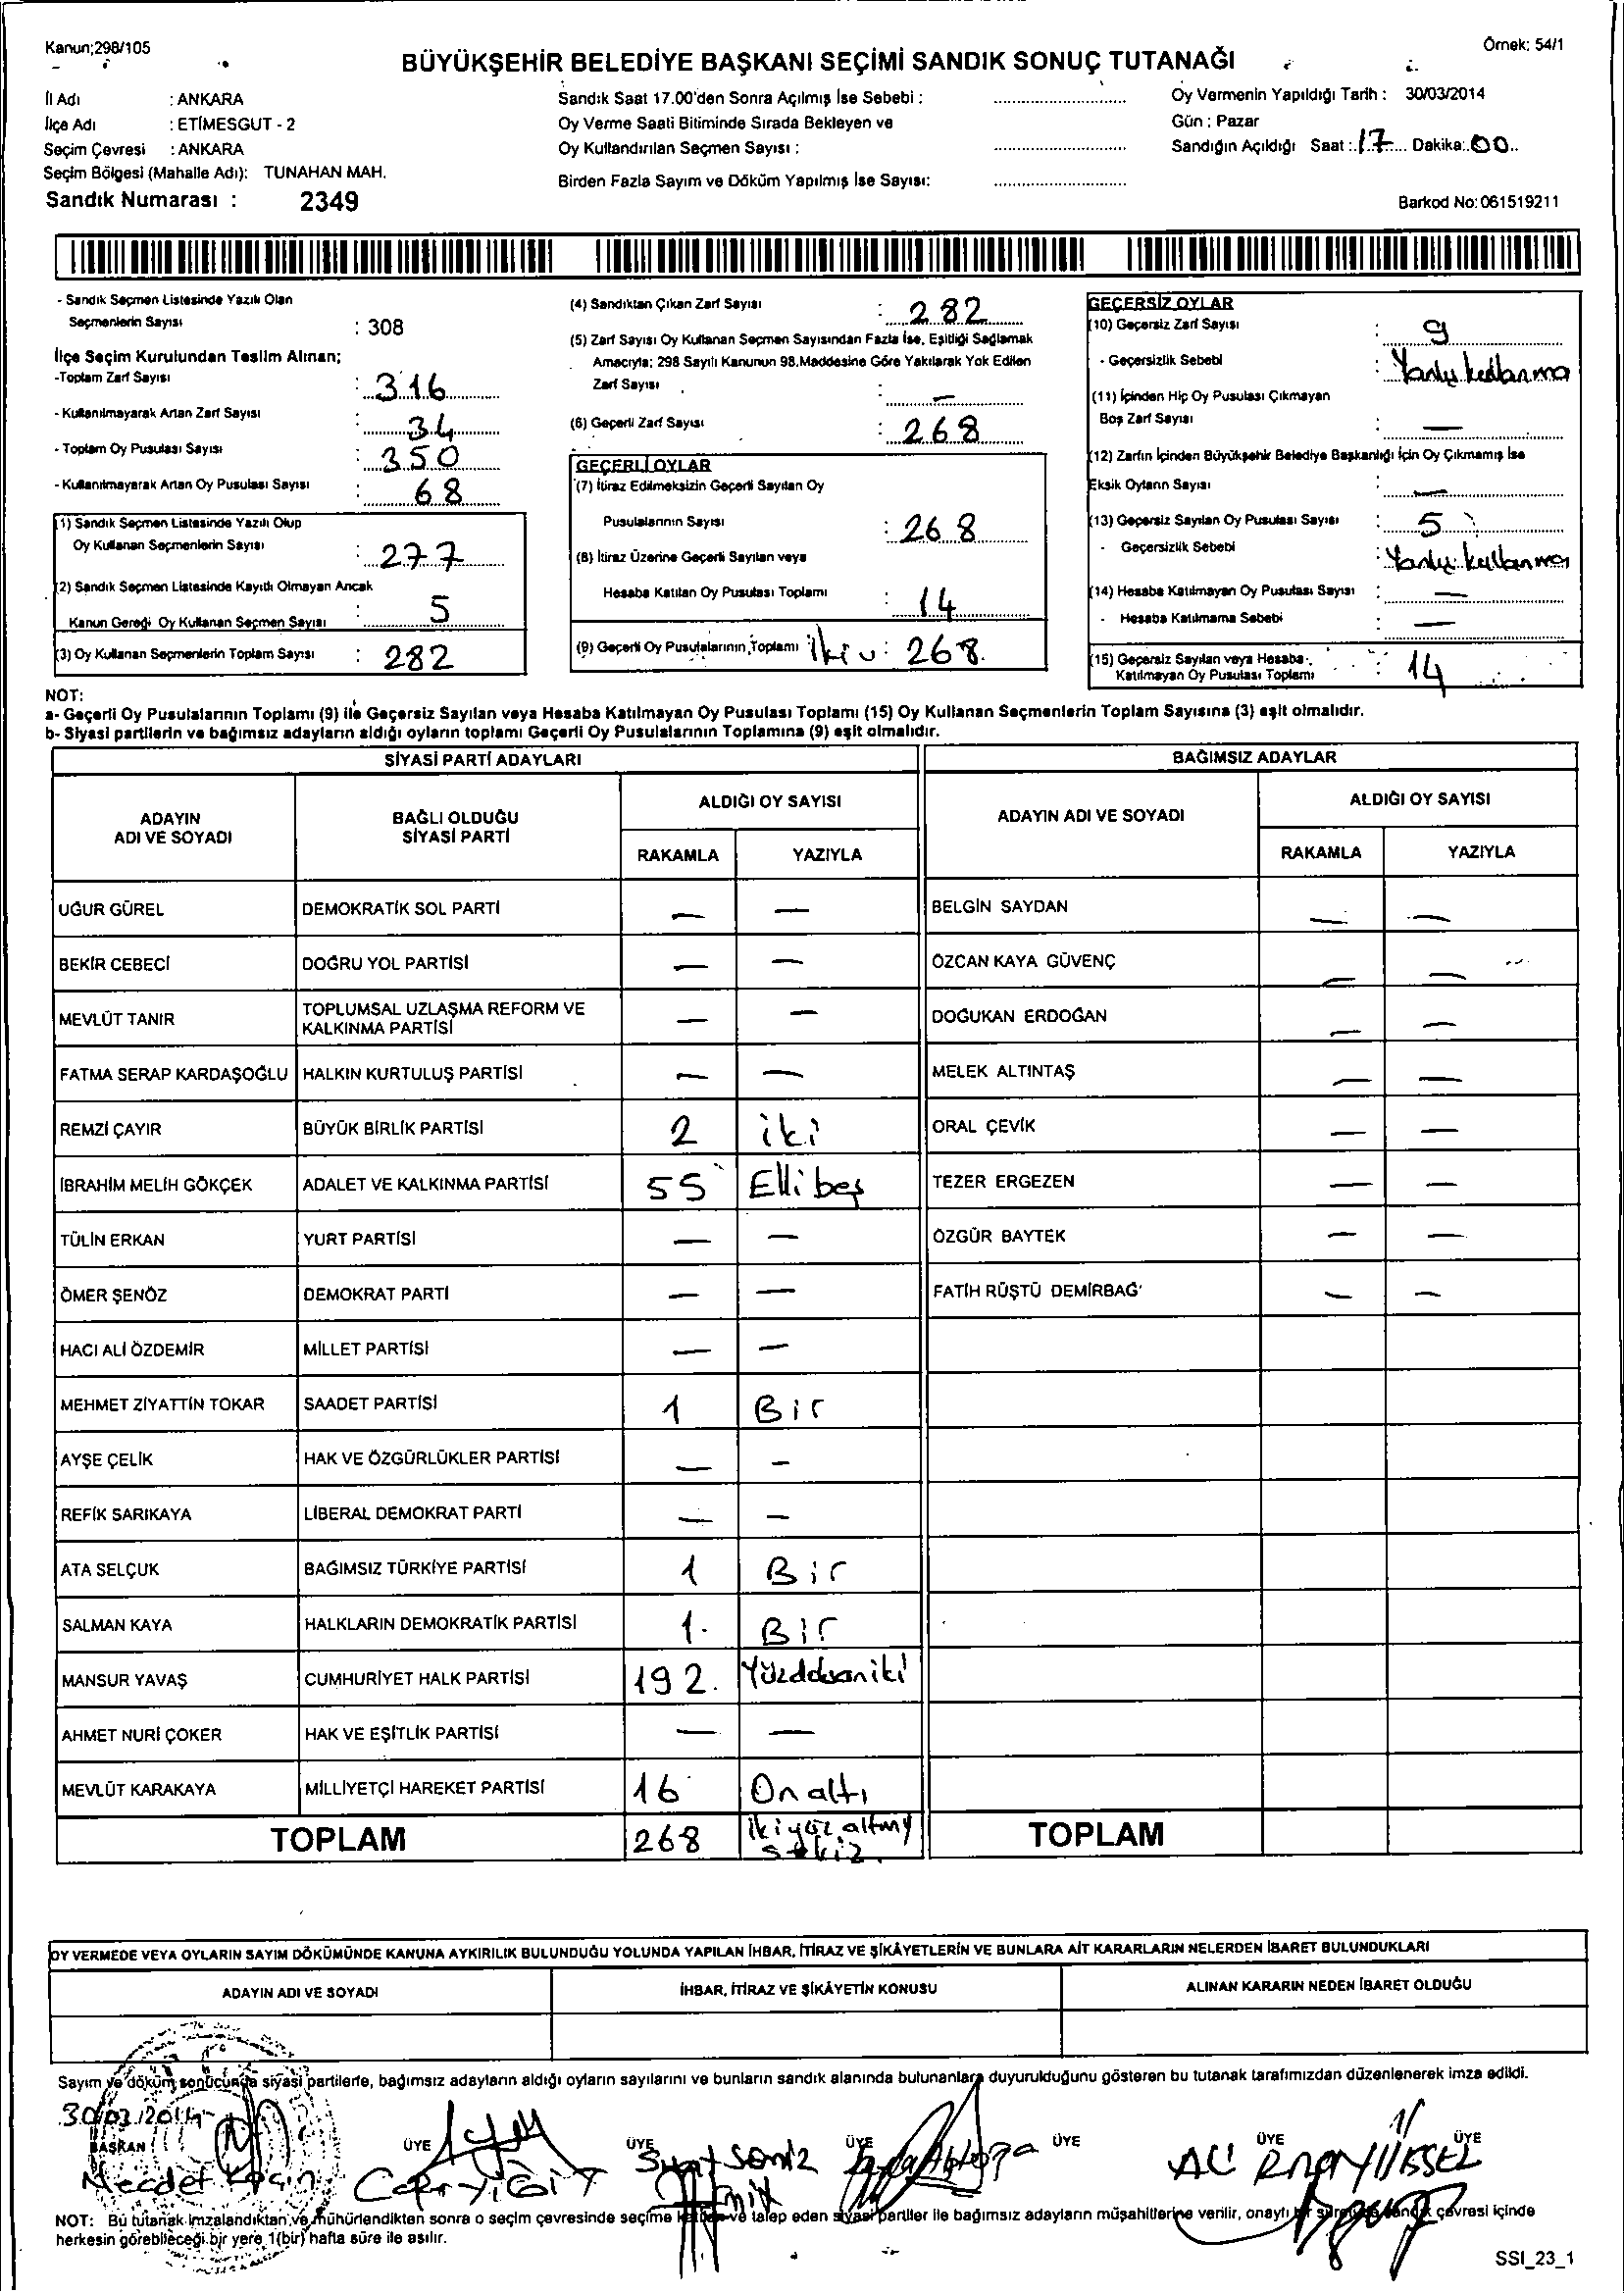 Kanun;298/105
Örnek: 54/1
BÜYÜKŞEHİR BELEDİYE BAŞKANI SEÇİMİ SANDIK SONUÇ TUTANAĞI
İl Adı : ANKARA
İlçe Adı : ETİMESGUT - 2
Seçim Çevresi : ANKARA
Seçim Bölgesi (Mahalle Adı): TUNAHAN MAH.
Sandık Numarası : 2349
Sandık Saat 17.00'den Sonra Açılmış İse Sebebi :
Oy Verme Saati Bitiminde Sırada Bekleyen ve
Oy Kullandırılan Seçmen Sayısı :
Birden Fazla Sayım ve Döküm Yapılmış İse Sayısı:
Oy Vermenin Yapıldığı Tarih : 30/03/2014
Gün : Pazar
Sandığın Açıldığı Saat : 17 Dakika: 00
Barkod No:061519211
- Sandık Seçmen Listesinde Yazılı Olan
Seçmenlerin Sayısı : 308
İlçe Seçim Kurulundan Teslim Alınan;
-Toplam Zarf Sayısı : 316
- Kullanılmayarak Artan Zarf Sayısı : 34
- Toplam Oy Pusulası Sayısı : 350
- Kullanılmayarak Artan Oy Pusulası Sayısı : 68
(1) Sandık Seçmen Listesinde Yazılı Olup
Oy Kullanan Seçmenlerin Sayısı : 277
(2) Sandık Seçmen Listesinde Kayıtlı Olmayan Ancak
Kanun Gereği Oy Kullanan Seçmen Sayısı : 5
(3) Oy Kullanan Seçmenlerin Toplam Sayısı : 282
(4) Sandıktan Çıkan Zarf Sayısı : 282
(5) Zarf Sayısı Oy Kullanan Seçmen Sayısından Fazla İse, Eşitliği Sağlamak
Amacıyla; 298 Sayılı Kanunun 98.Maddesine Göre Yakılarak Yok Edilen
Zarf Sayısı : —
(6) Geçerli Zarf Sayısı : 268
GEÇERLİ OYLAR
(7) İtiraz Edilmeksizin Geçerli Sayılan Oy
Pusulalarının Sayısı : 268
(8) İtiraz Üzerine Geçerli Sayılan veya
Hesaba Katılan Oy Pusulası Toplamı : 14
(9) Geçerli Oy Pusulalarının Toplamı : 268.
GEÇERSİZ OYLAR
(10) Geçersiz Zarf Sayısı : 9
- Geçersizlik Sebebi : Yanlış kullanma
(11) İçinden Hiç Oy Pusulası Çıkmayan
Boş Zarf Sayısı : —
(12) Zarfın İçinden Büyükşehir Belediye Başkanlığı İçin Oy Çıkmamış İse
Eksik Oyların Sayısı : —
(13) Geçersiz Sayılan Oy Pusulası Sayısı : 5
- Geçersizlik Sebebi : Yanlış kullanma
(14) Hesaba Katılmayan Oy Pusulası Sayısı : —
- Hesaba Katılmama Sebebi : —
(15) Geçersiz Sayılan veya Hesaba
Katılmayan Oy Pusulası Toplamı : 14
NOT:
a- Geçerli Oy Pusulalarının Toplamı (9) ile Geçersiz Sayılan veya Hesaba Katılmayan Oy Pusulası Toplamı (15) Oy Kullanan Seçmenlerin Toplam Sayısına (3) eşit olmalıdır.
b- Siyasi partilerin ve bağımsız adayların aldığı oyların toplamı Geçerli Oy Pusulalarının Toplamına (9) eşit olmalıdır.
SİYASİ PARTİ ADAYLARI BAĞIMSIZ ADAYLAR
ADAYIN ADI VE SOYADI BAĞLI OLDUĞU SİYASİ PARTİ ALDIĞI OY SAYISI ADAYIN ADI VE SOYADI ALDIĞI OY SAYISI
RAKAMLA YAZIYLA RAKAMLA YAZIYLA
UĞUR GÜREL DEMOKRATİK SOL PARTİ — — BELGİN SAYDAN — —
BEKİR CEBECİ DOĞRU YOL PARTİSİ — — ÖZCAN KAYA GÜVENÇ — —
MEVLÜT TANIR TOPLUMSAL UZLAŞMA REFORM VE KALKINMA PARTİSİ — — DOĞUKAN ERDOĞAN — —
FATMA SERAP KARDAŞOĞLU HALKIN KURTULUŞ PARTİSİ — — MELEK ALTINTAŞ — —
REMZİ ÇAYIR BÜYÜK BİRLİK PARTİSİ 2 iki ORAL ÇEVİK — —
İBRAHİM MELİH GÖKÇEK ADALET VE KALKINMA PARTİSİ 55 Elli beş TEZER ERGEZEN — —
TÜLİN ERKAN YURT PARTİSİ — — ÖZGÜR BAYTEK — —
ÖMER ŞENÖZ DEMOKRAT PARTİ — — FATİH RÜŞTÜ DEMİRBAĞ — —
HACI ALİ ÖZDEMİR MİLLET PARTİSİ — —
MEHMET ZİYATTİN TOKAR SAADET PARTİSİ 1 Bir
AYŞE ÇELİK HAK VE ÖZGÜRLÜKLER PARTİSİ — —
REFİK SARIKAYA LİBERAL DEMOKRAT PARTİ — —
ATA SELÇUK BAĞIMSIZ TÜRKİYE PARTİSİ 1 Bir
SALMAN KAYA HALKLARIN DEMOKRATİK PARTİSİ 1. Bir
MANSUR YAVAŞ CUMHURİYET HALK PARTİSİ 192. Yüzdoksaniki
AHMET NURİ ÇOKER HAK VE EŞİTLİK PARTİSİ — —
MEVLÜT KARAKAYA MİLLİYETÇİ HAREKET PARTİSİ 16 On altı
TOPLAM 268 ikiyüz altmış sekiz. TOPLAM
OY VERMEDE VEYA OYLARIN SAYIM DÖKÜMÜNDE KANUNA AYKIRILIK BULUNDUĞU YOLUNDA YAPILAN İHBAR, İTİRAZ VE ŞİKÂYETLERİN VE BUNLARA AİT KARARLARIN NELERDEN İBARET BULUNDUKLARI
ADAYIN ADI VE SOYADI İHBAR, İTİRAZ VE ŞİKÂYETİN KONUSU ALINAN KARARIN NEDEN İBARET OLDUĞU
Sayım ve döküm sonucunda siyasi partilerle, bağımsız adayların aldığı oyların sayılarını ve bunların sandık alanında bulunanlara duyurulduğunu gösteren bu tutanak tarafımızdan düzenlenerek imza edildi.
30/03/2014
BAŞKAN ÜYE ÜYE ÜYE ÜYE ÜYE ÜYE
Necdet
NOT: Bu tutanak imzalandıktan ve mühürlendikten sonra o seçim çevresinde seçime katılan ve talep eden siyasi partiler ile bağımsız adayların müşahitlerine verilir, onaylı bir sureti de sandık çevresi içinde
herkesin görebileceği bir yere 1(bir) hafta süre ile asılır.
SSI_23_1